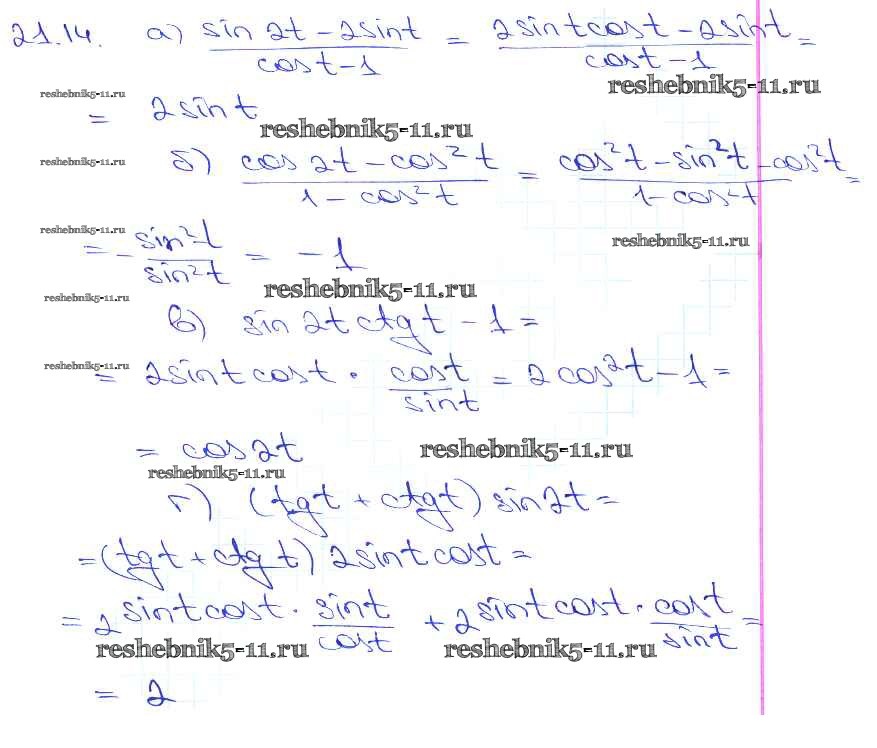 21.14. а) (sin 2t − 2sint)/(cost − 1) = (2sintcost − 2sint)/(cost − 1) =
reshebnik5-11.ru reshebnik5-11.ru
= 2sint reshebnik5-11.ru
reshebnik5-11.ru б) (cos 2t − cos²t)/(1 − cos²t) = (cos²t − sin²t − cos²t)/(1 − cos²t) =
reshebnik5-11.ru = − sin²t/sin²t = −1 reshebnik5-11.ru
reshebnik5-11.ru reshebnik5-11.ru
в) sin 2t ctg t − 1 =
reshebnik5-11.ru
= 2sint cost · cost/sint = 2cos²t − 1 =
= cos2t reshebnik5-11.ru
reshebnik5-11.ru
г) (tgt + ctgt) sin2t =
= (tgt + ctg t) 2sintcost =
= 2sintcost · sint/cost + 2sintcost · cost/sint =
reshebnik5-11.ru reshebnik5-11.ru
= 2